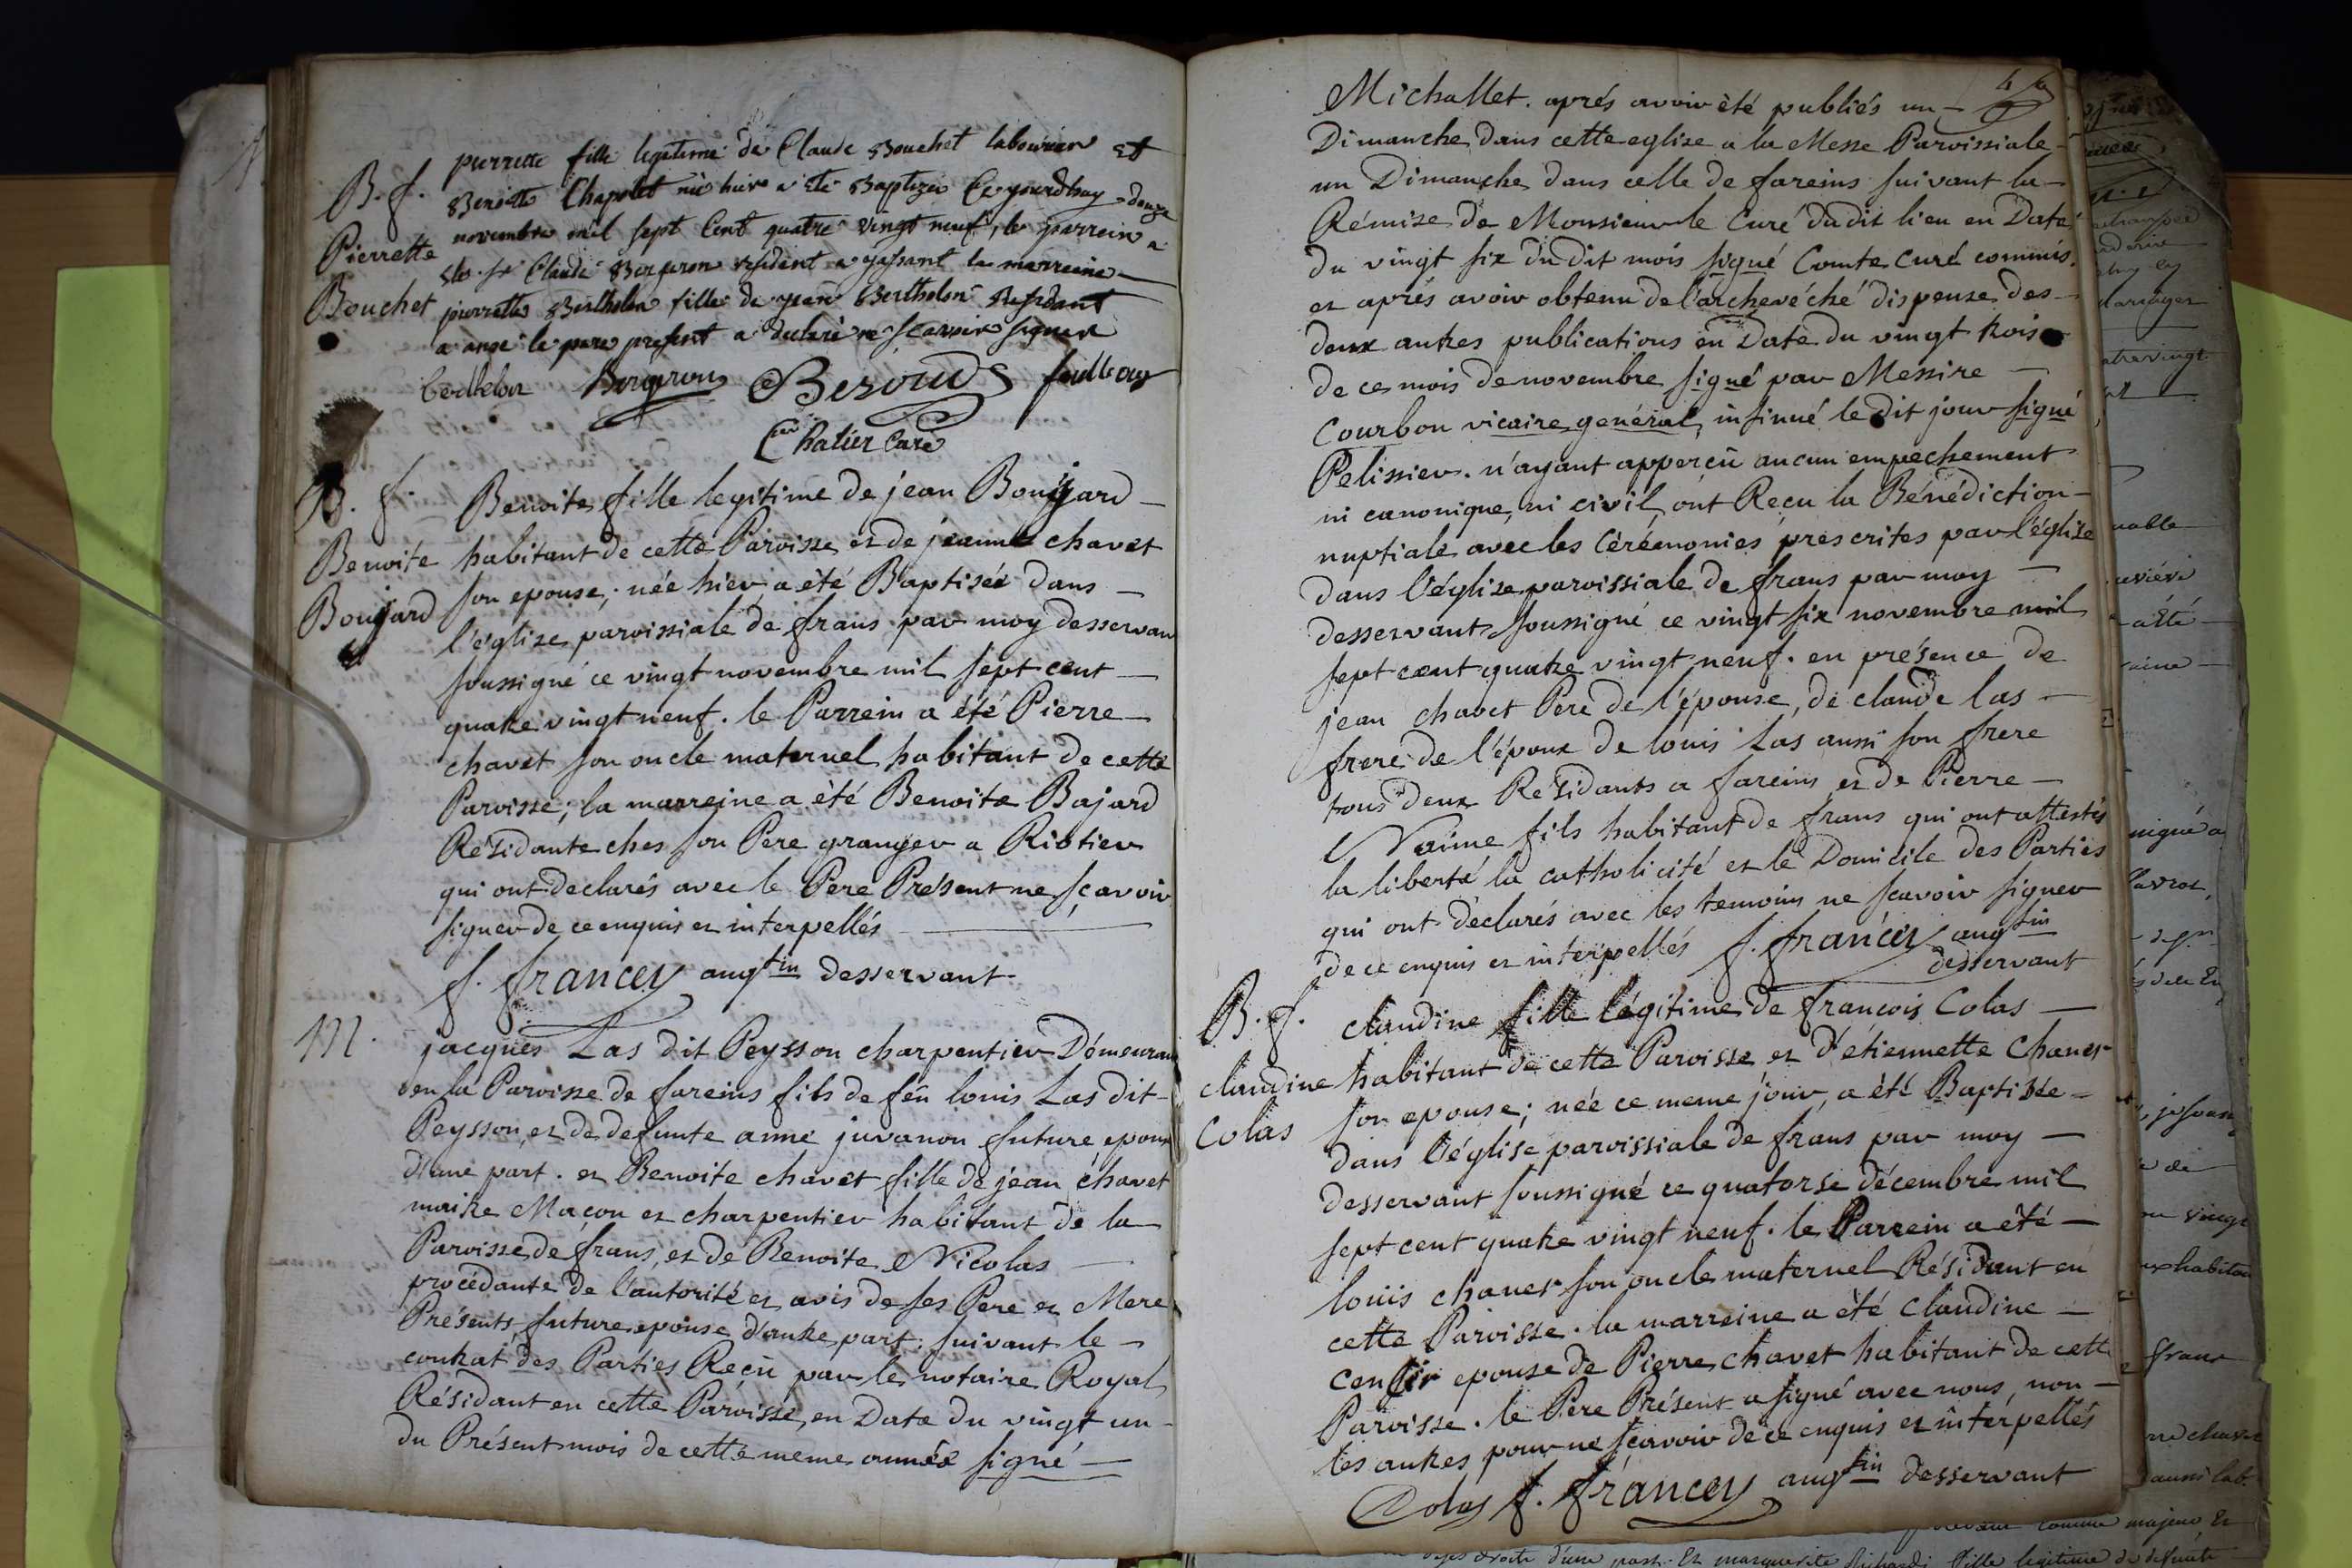 B. f.
Pierrette
Bouchet
pierrette fille legitime de Claude Bouchet laboureur et
Benoitte Chapolet née hier a été Baptizée Ce jourdhuy douze
novembre mil sept Cent quatre vingt neuf, le parrein a
été Sr Claude Bergeron résident a jassant la marreine
pierrette Berthelon fille de jean Berthelon Residant
a anse le pere present a declaré ne scavoir signer
berthelon Bergeron Besouds feuilleay
Chatier Curé
B. f.
Benoite
Boujard
Benoite fille legitime de jean Boujard
habitant de cette Paroisse et de jeanne chavet
son epouse; née hier a été Baptisée dans
l'église paroissiale de frans par moy desservan
soussigné ce vingt novembre mil sept cent
quatre vingt neuf. le Parrein a été Pierre
chavet son oncle maternel habitant de cette
Paroisse; la marreine a été Benoite Bajard
Résidante ches son Pere granger a Riotier
qui ont declarés avec le Pere Présent ne sçavoir
signer de ce enquis et interpellés
f. francey augtin desservant
M.
jacques Las dit Peysson charpentier Démeuran
en la Paroisse de fareins fils de feu louis Las dit
Peysson, et de defunte anne juvanon future epoux
d'une part. et Benoite chavet fille de jean chavet
maitre Maçon et charpentier habitant de la
Paroisse de frans, et de Benoite Nicolas
procédante de l'autorité et avis de ses Pere et Mere
Présents, future epouse d'autre part: suivant le
contrat des Parties Reçu par le notaire Royal
Résidant en cette Paroisse, en Date du vingt un
du Présent mois de cette meme année signé
Michallet. aprés avoir été publiés un
Dimanche dans cette eglise a la Messe Paroissiale
un Dimanche dans celle de fareins suivant la
Rémise de Monsieur le Curé dudit lieu en Date
du vingt six du dit mois signé Comte curé commis.
et aprés avoir obtenu de l'archevêché dispense des
deux autres publications en Date du vingt trois
de ce mois de novembre signé par Messire
Courbon vicaire genéral, insinué le dit jour signé
Pelissier. n'ayant apperçu aucun empechement
ni canonique, ni civil, ont Reçu la Bénédiction
nuptiale avec les Cérémonies prescrites par l'église
dans l'église paroissiale de frans par moy
desservant soussigné ce vingt six novembre mil
sept cent quatre vingt neuf. en présence de
jean chavet Pere de l'épouse, de claude las
frere de l'époux de louis Las aussi son frere
tous deux Résidants a fareins et de Pierre
Naime fils habitant de frans qui ont attestés
la liberté la catholicité et le Domicile des Parties
qui ont déclarés avec les temoins ne scavoir signer
de ce enquis et interpellés f. francey augtin
desservant
B. f.
claudine
Colas
claudine fille légitime de francois Colas
habitant de cette Paroisse et d'étiennette Chanet
son epouse; née ce meme jour, a été Baptisée
dans l'église paroissiale de frans par moy
desservant soussigné ce quatorse décembre mil
sept cent quatre vingt neuf. le Parrein a été
louis chanet son oncle maternel Résidant en
cette Paroisse. la marreine a été claudine
epouse de Pierre chavet habitant de cett
Paroisse. le Pere Présent a signé avec nous, non
les autres pour ne sçavoir de ce enquis et interpellés
Colas f. francey augtin desservant